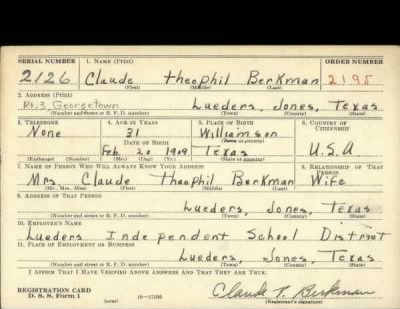 SERIAL NUMBER 1. NAME (Print) ORDER NUMBER
2126 Claude Theophil Berkman 2195
(First) (Middle) (Last)
2. ADDRESS (Print)
Rt. 3, Georgetown Lueders, Jones, Texas
(Number and street or R. F. D. number) (Town) (County) (State)
3. TELEPHONE 4. AGE IN YEARS 5. PLACE OF BIRTH 6. COUNTRY OF CITIZENSHIP
None 31 Williamson
DATE OF BIRTH (Town or county)
Feb 20 1909 Texas U.S.A
(Exchange) (Number) (Mo.) (Day) (Yr.) (State or country)
7. NAME OF PERSON WHO WILL ALWAYS KNOW YOUR ADDRESS 8. RELATIONSHIP OF THAT PERSON
Mrs. Claude Theophil Berkman Wife
(Mr., Mrs., Miss) (First) (Middle) (Last)
9. ADDRESS OF THAT PERSON
Lueders, Jones, Texas
(Number and street or R. F. D. number) (Town) (County) (State)
10. EMPLOYER'S NAME
Lueders Independent School District
11. PLACE OF EMPLOYMENT OR BUSINESS
Lueders, Jones, Texas
(Number and street or R. F. D. number) (Town) (County) (State)
I AFFIRM THAT I HAVE VERIFIED ABOVE ANSWERS AND THAT THEY ARE TRUE.
REGISTRATION CARD
D. S. S. Form 1 (over) Claude T. Berkman
(Registrant's signature)